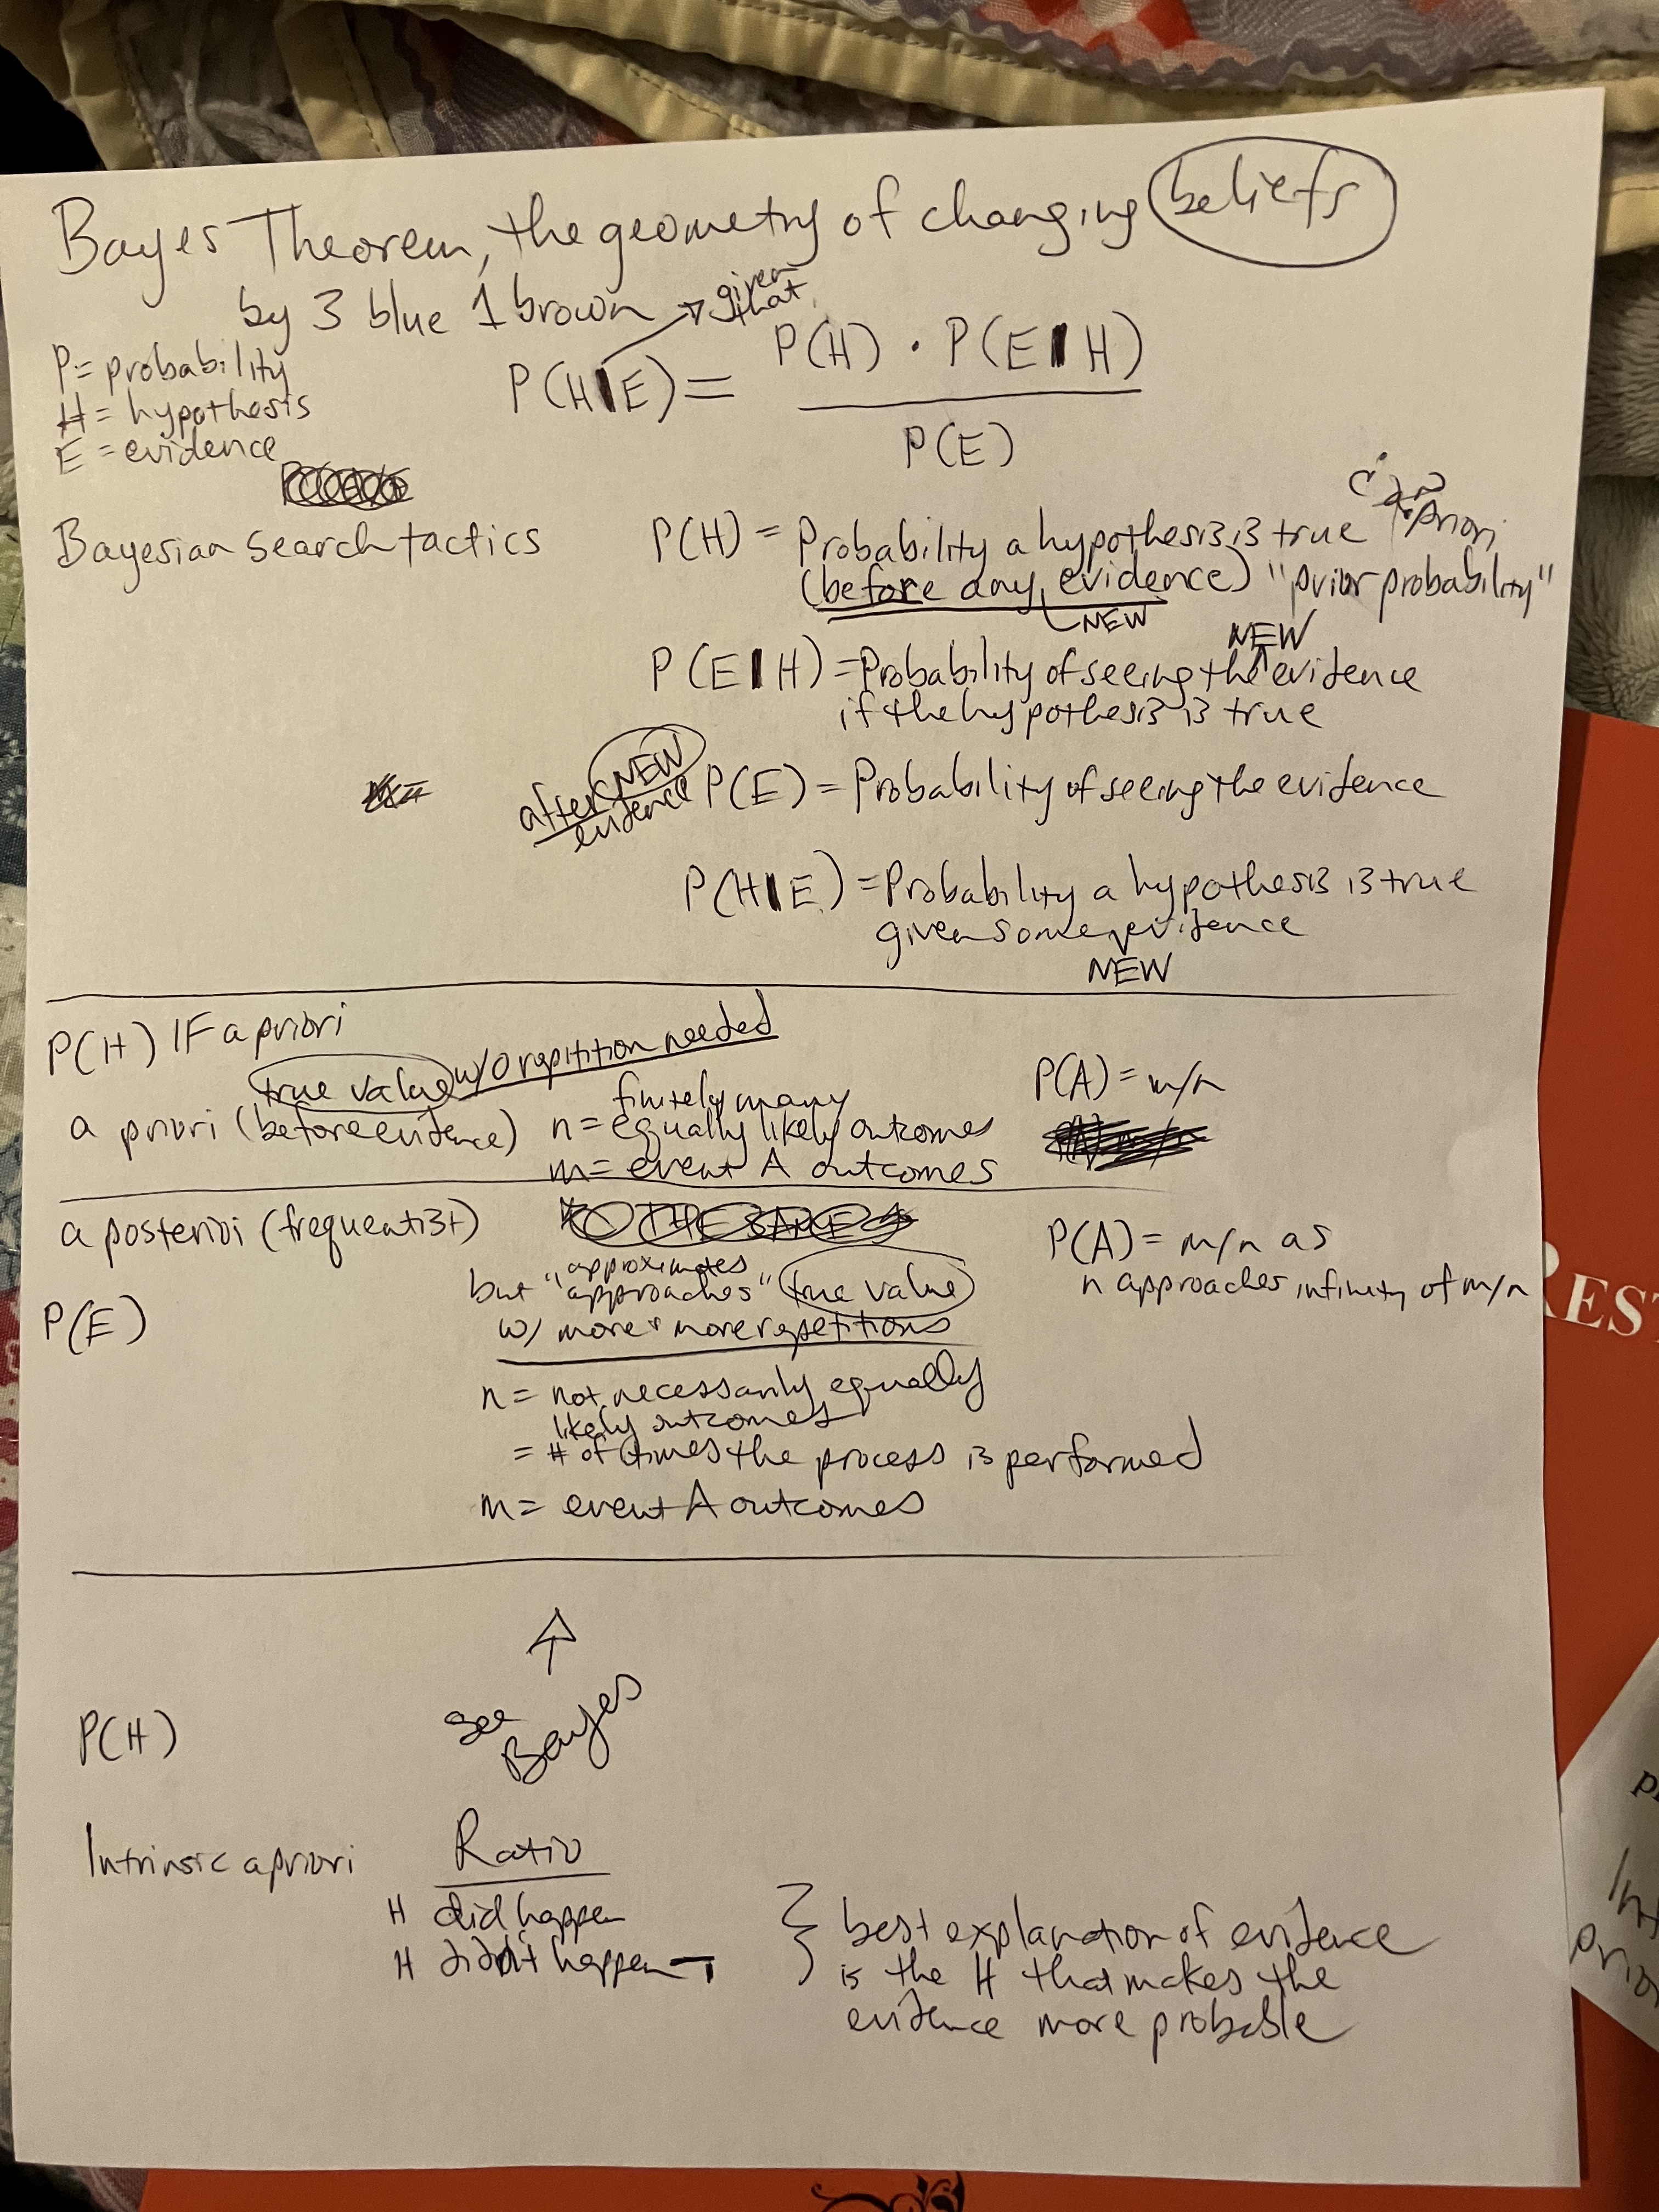 Bayes Theorem, the geometry of changing beliefs
by 3 blue 1 brown → given that
P = probability
H = hypothesis
E = evidence
P(H|E) = P(H) · P(E|H)
P(E)
Bayesian search tactics
P(H) = Probability a hypothesis is true
a priori
(before any evidence) "prior probability"
NEW
NEW
P(E|H) = Probability of seeing the evidence
if the hypothesis is true
after NEW
evidence
P(E) = Probability of seeing the evidence
P(H|E) = Probability a hypothesis is true
given some evidence
NEW
P(H) IF a priori
true value w/o repitition needed
a priori (before evidence)
finitely many
n = equally likely outcomes
m = event A outcomes
P(A) = m/n
a posteriori (frequentist)
TO THE SAME
approximates
but "approaches" true value
w/ more + more repetitions
P(A) = m/n as
n approaches infinity of m/n
P(E)
n = not necessarily equally
likely outcomes
= # of times the process is performed
m = event A outcomes
see
Bayes
P(H)
Intrinsic a priori
Ratio
H did happen
H didn't happen
best explanation of evidence
is the H that makes the
evidence more probable
REST